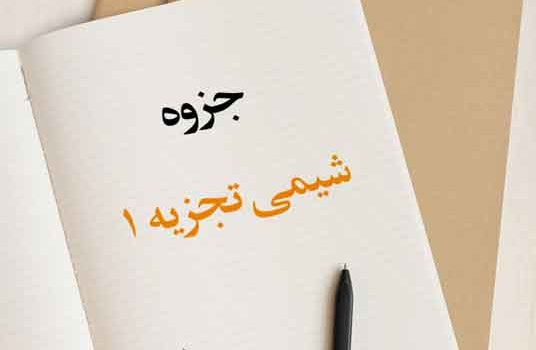 جزوه
شیمی تجزیه ۱